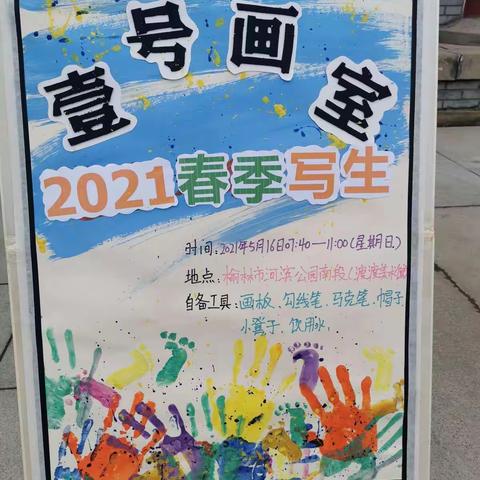 壹号画室
2021春季写生
时间:2021年5月16日07:40—11:00(星期日)
地点:榆林市河滨公园南段(
自备工具:画板、勾线笔、马克笔、帽子
小凳子、饮用水,